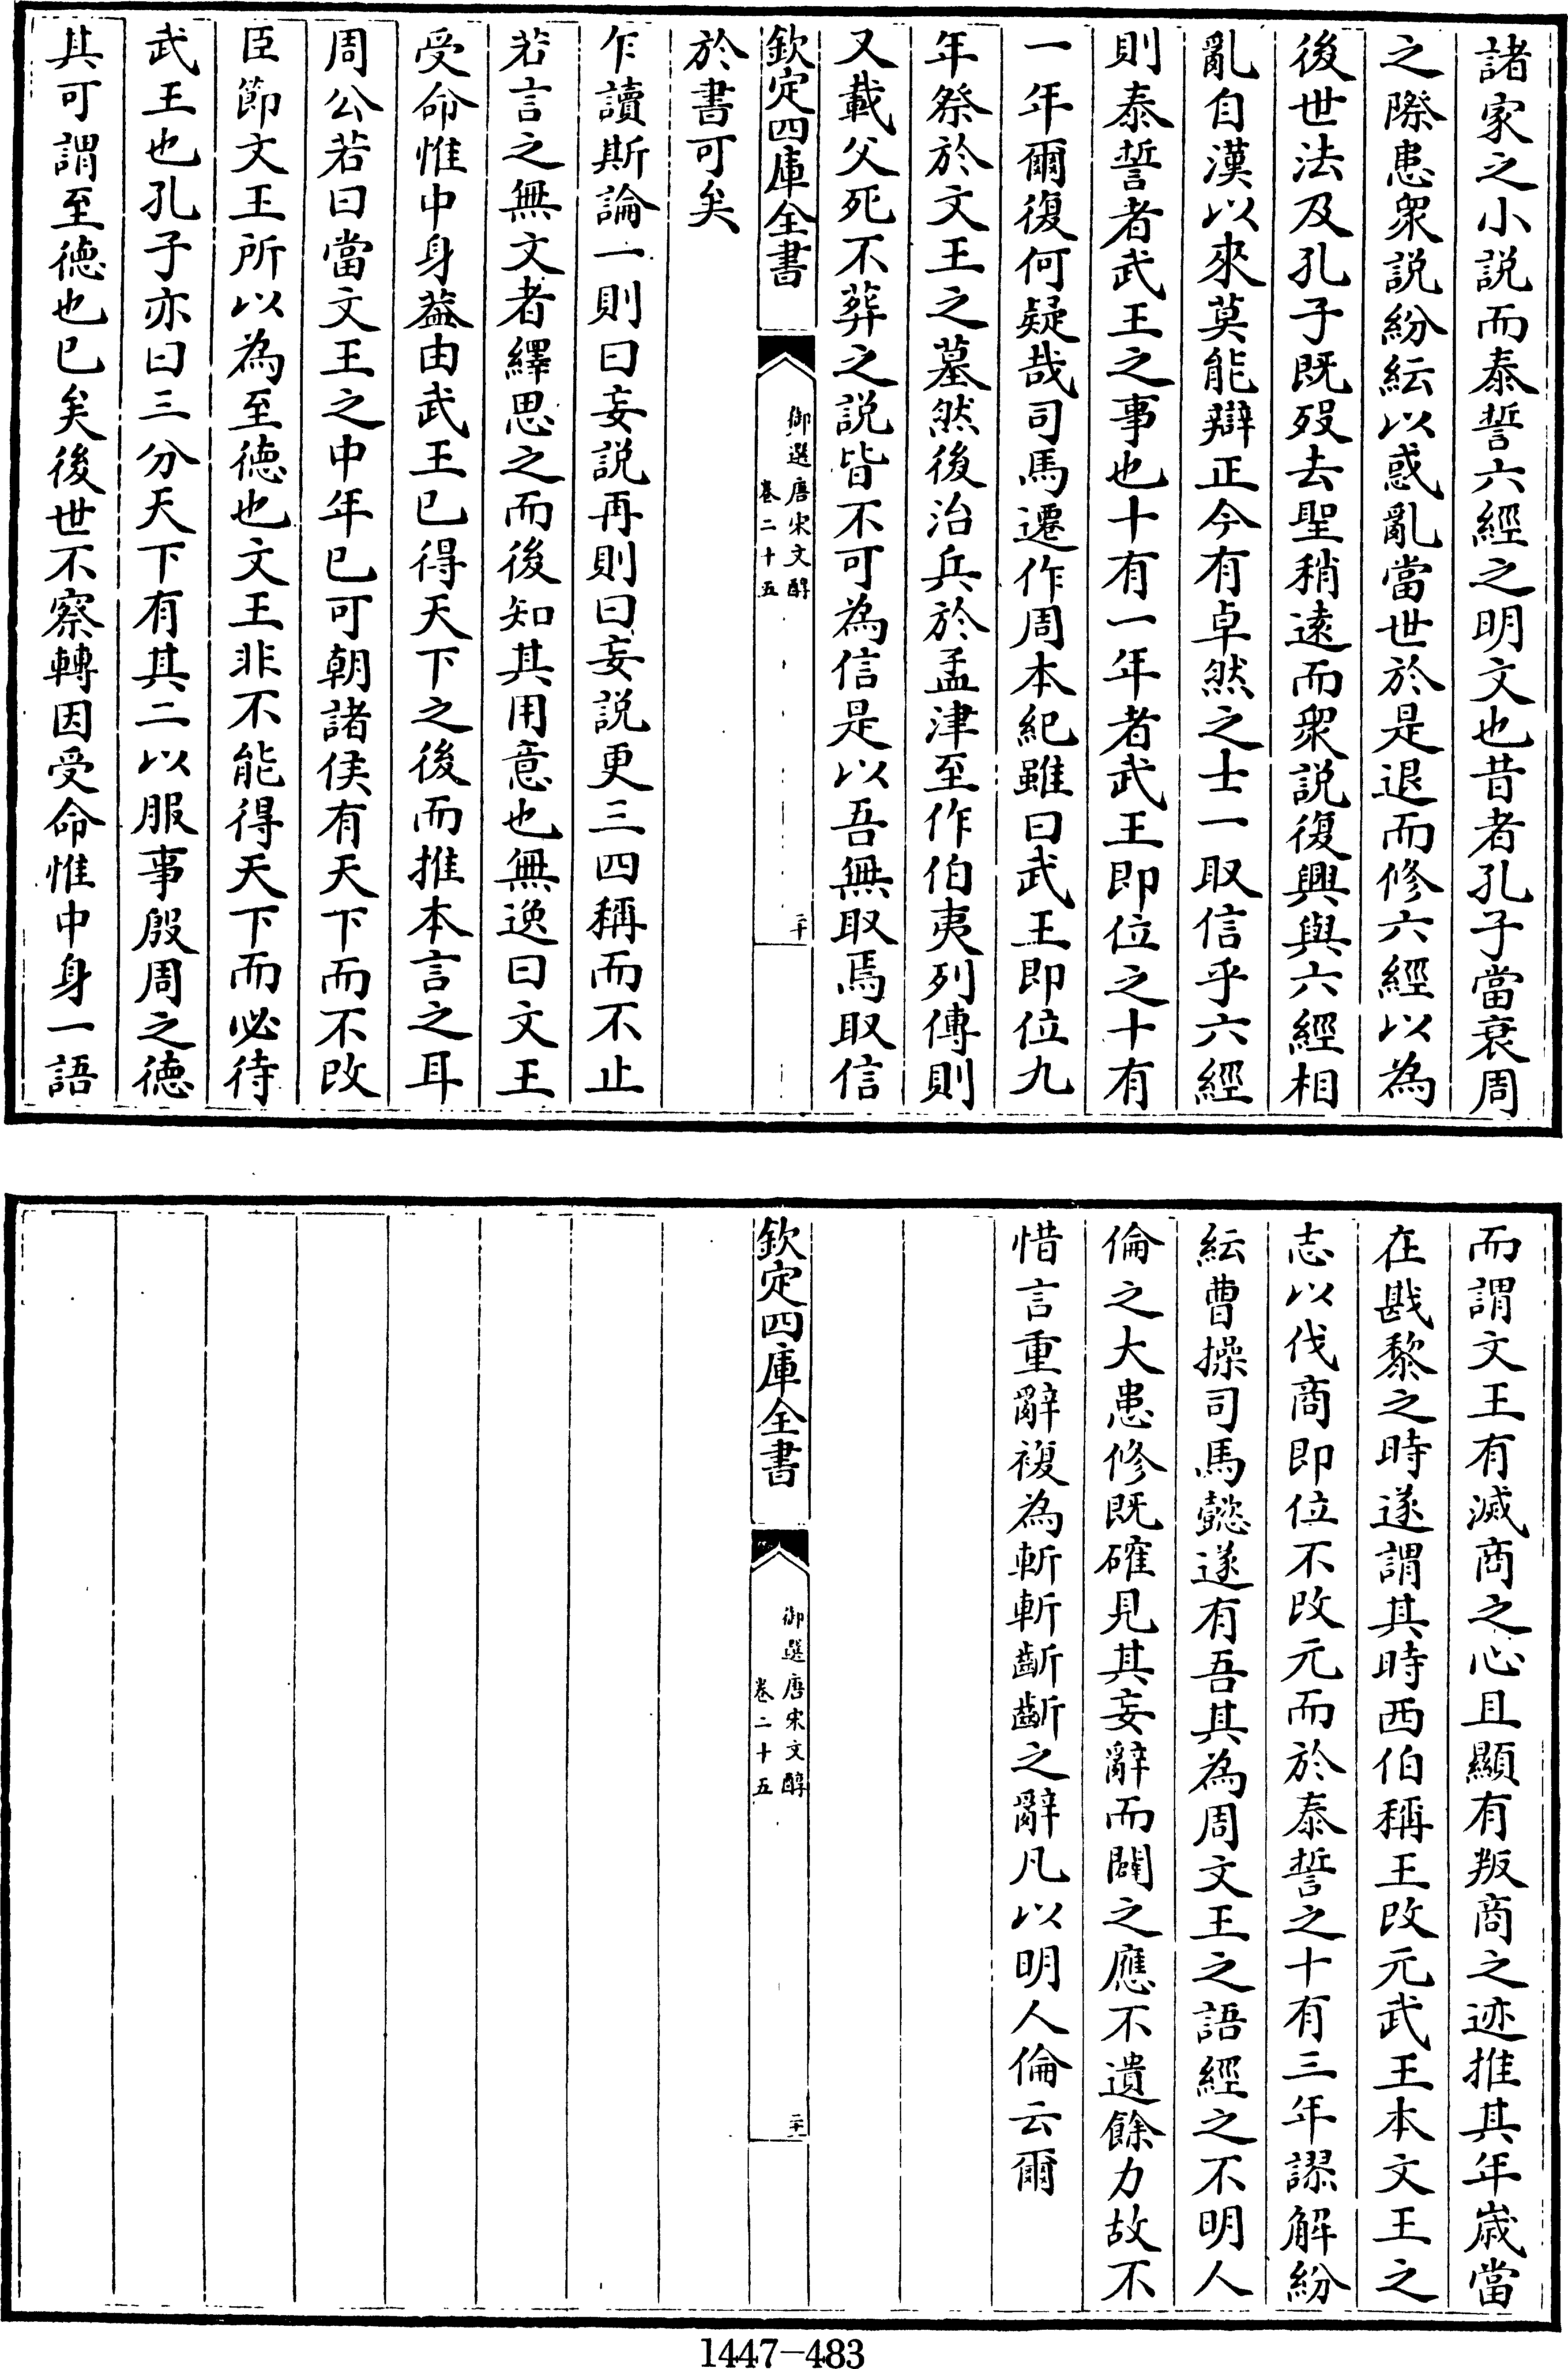 諸家之小說而泰誓六經之明文也昔者孔子當衰周
之際患衆說紛紜以惑亂當世於是退而修六經以為
後世法及孔子既歿去聖稍遠而衆說復興與六經相
亂自漢以來莫能辯正今有卓然之士一取信乎六經
則泰誓者武王之事也十有一年者武王即位之十有
一年爾復何疑哉司馬遷作周本紀雖曰武王即位九
年祭於文王之墓然後治兵於孟津至作伯夷列傳則
又載父死不葬之說皆不可為信是以吾無取焉取信
欽定四庫全書
御選唐宋文醇
卷二十五
二十
於書可矣
乍讀斯論一則曰妄說再則曰妄說更三四稱而不止
若言之無文者繹思之而後知其用意也無逸曰文王
受命惟中身葢由武王已得天下之後而推本言之耳
周公若曰當文王之中年已可朝諸侯有天下而不改
臣節文王所以為至德也文王非不能得天下而必待
武王也孔子亦曰三分天下有其二以服事殷周之德
其可謂至德也已矣後世不察轉因受命惟中身一語
而謂文王有滅商之心且顯有叛商之迹推其年歲當
在戡黎之時遂謂其時西伯稱王改元武王本文王之
志以伐商即位不改元而於泰誓之十有三年謬解紛
紜曹操司馬懿遂有吾其為周文王之語經之不明人
倫之大患修既確見其妄辭而闢之應不遺餘力故不
惜言重辭複為斬斬齗齗之辭凡以明人倫云爾
欽定四庫全書
御選唐宋文醇
卷二十五
二十一
1447-483